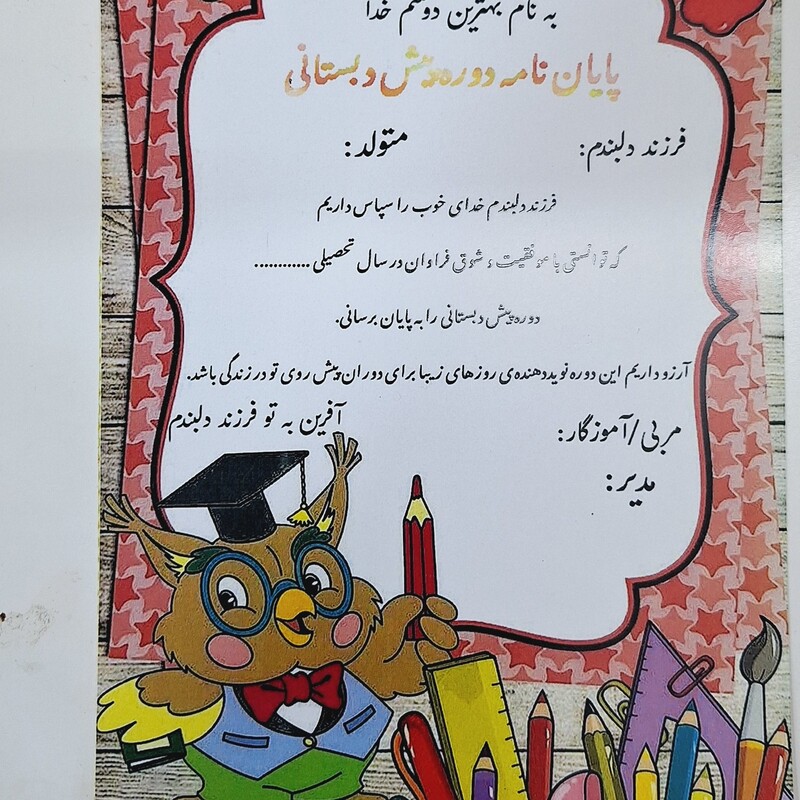 به نام بهترین دوستم خدا
پایان نامه دوره پیش دبستانی
فرزند دلبندم: متولد:
فرزند دلبندم خدای خوب را سپاس داریم
که توانستی با موفقیت و شوق فراوان در سال تحصیلی ............
دوره پیش دبستانی را به پایان برسانی.
آرزو داریم این دوره نوید دهنده‌ی روزهای زیبا برای دوران پیش روی تو در زندگی باشد.
آفرین به تو فرزند دلبندم
مربی/آموزگار:
مدیر: